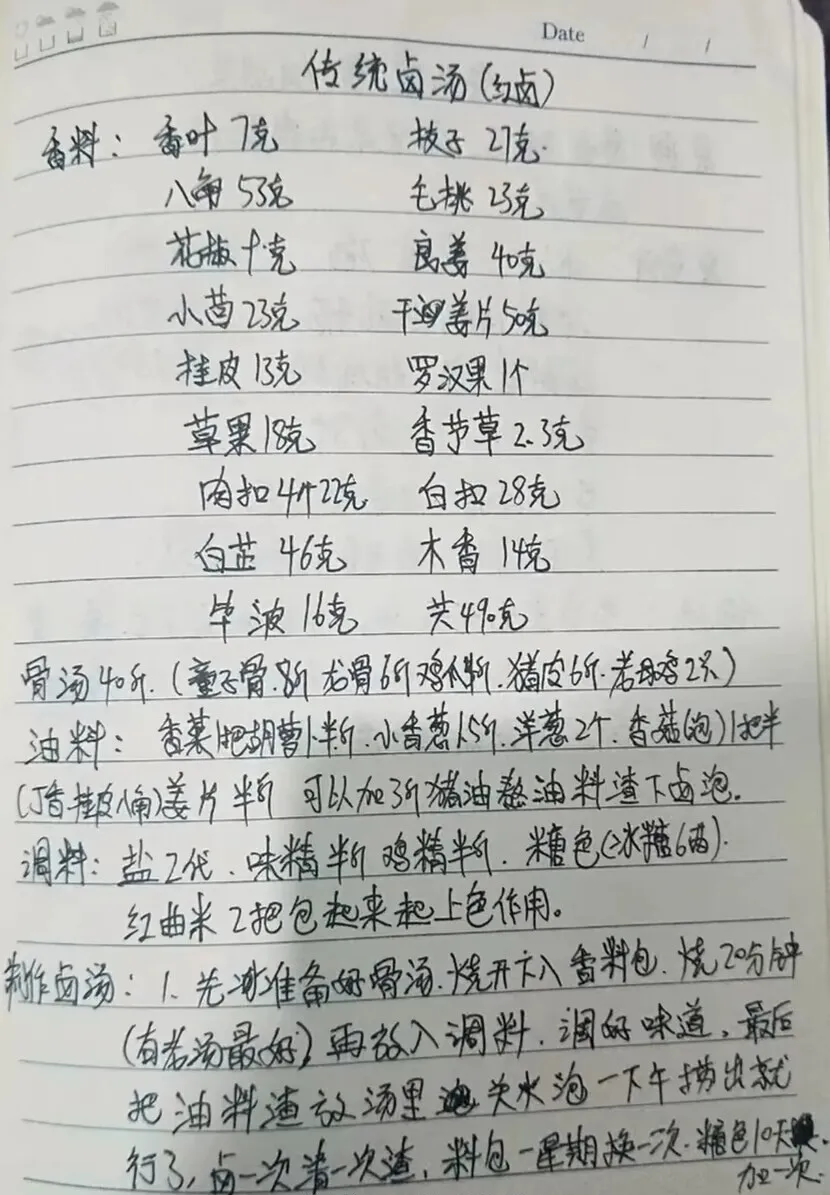 Date / /
传统卤汤(红卤)
香料: 香叶 7克 枝子 27克.
八角 53克 毛桃 23克
花椒 十克 良姜 40克
小茴 23克 干姜片 50克
桂皮 13克 罗汉果 1个
草果 18克 香茅草 2.3克
肉扣 4个 22克 白扣 28克
白芷 46克 木香 14克
毕波 16克 共490克
骨汤40斤.(童子骨.8斤 龙骨6斤 猪皮6斤.老母鸡2只)
油料: 香菜1把胡萝卜半斤.小香葱1.5斤.洋葱2个.香菇(泡)1把半
(丁香.桂皮八角)姜片半斤 可以加3斤猪油熬油料渣下卤泡.
调料: 盐2代.味精半斤 鸡精半斤.糖色(冰糖6两).
红曲米2把包起来起上色作用。
制作卤汤: 1.先准备好骨汤.烧开下入香料包.烧20分钟
(有老汤最好)再放入调料.调好味道.最后
把油料渣放汤里 关火泡一下午捞出就
行了,卤一次清一次渣,料包一星期换一次.糖色10天
加一次.